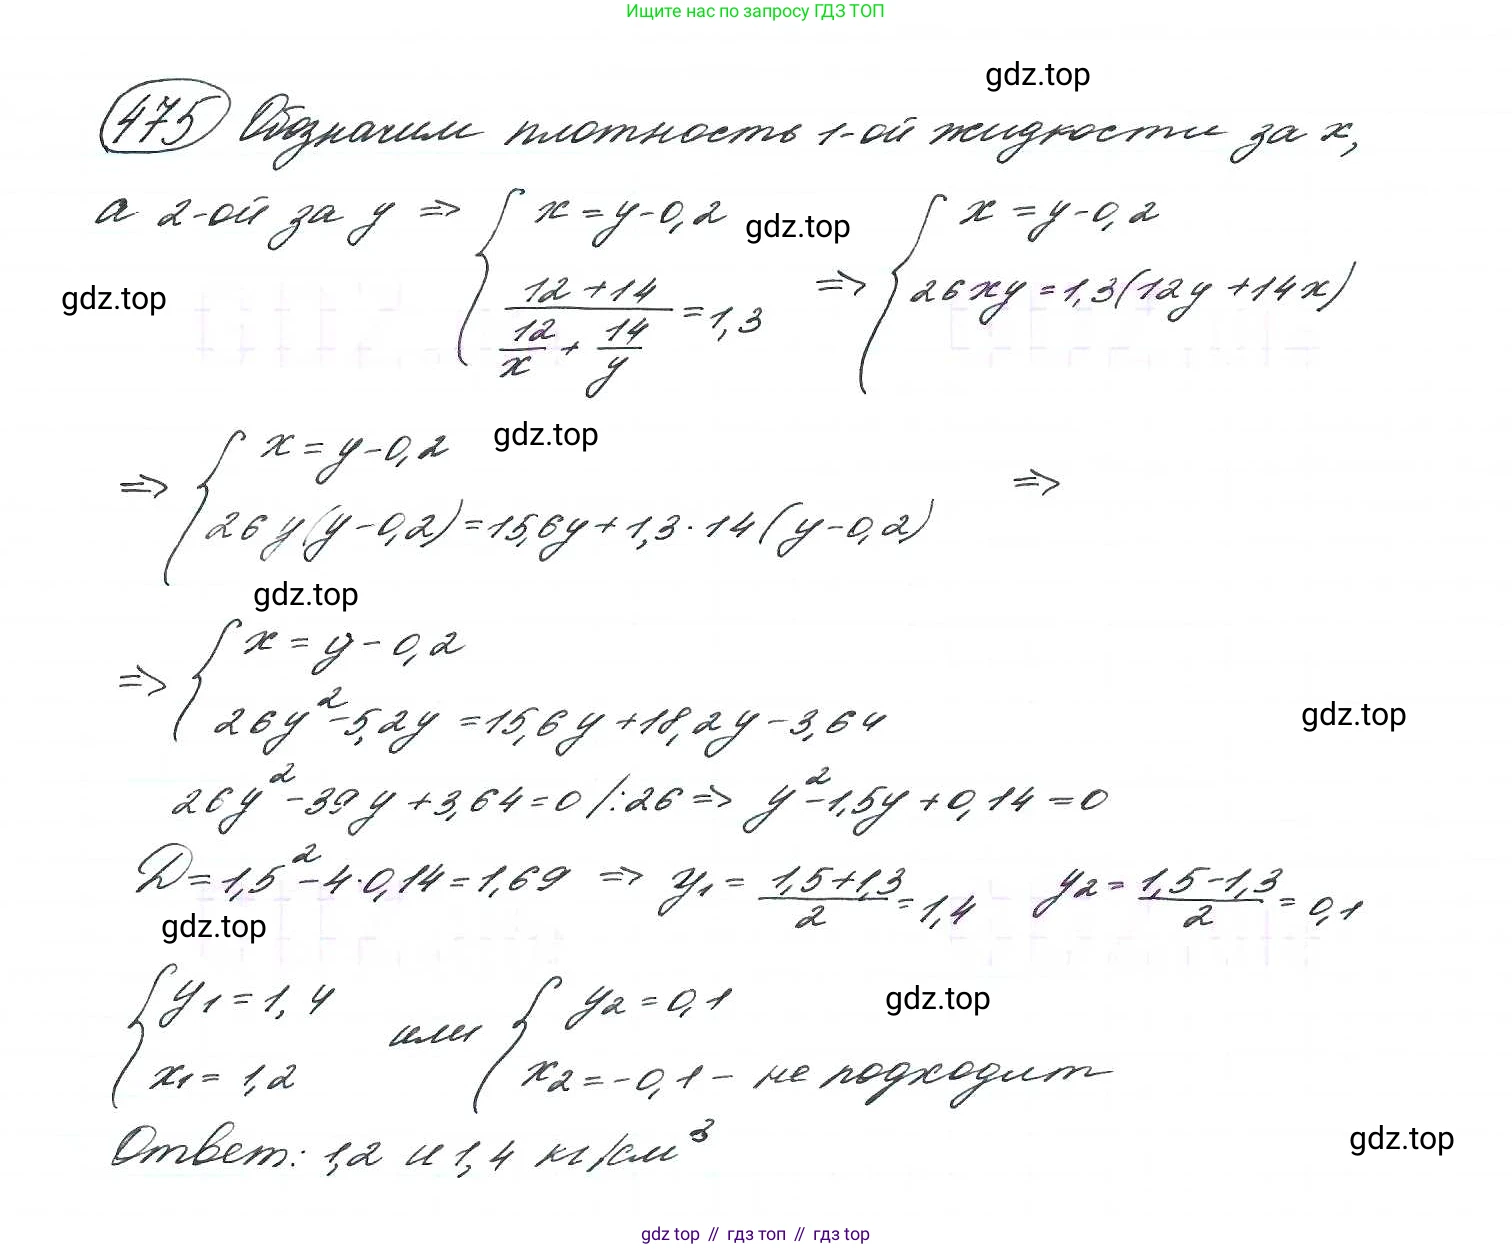 Ищите нас по запросу ГДЗ ТОП
gdz.top
475 Обозначим плотность 1-ой жидкости за x,
а 2-ой за y => { x = y - 0,2 gdz.top { x = y - 0,2
gdz.top
(12 + 14) / (12/x + 14/y) = 1,3 => 26xy = 1,3(12y + 14x)
=> { x = y - 0,2 gdz.top
26y(y - 0,2) = 15,6y + 1,3 · 14(y - 0,2) =>
gdz.top
=> { x = y - 0,2
26y² - 5,2y = 15,6y + 18,2y - 3,64
gdz.top
26y² - 39y + 3,64 = 0 /:26 => y² - 1,5y + 0,14 = 0
D = 1,5² - 4·0,14 = 1,69 => y₁ = (1,5 + 1,3)/2 = 1,4 y₂ = (1,5 - 1,3)/2 = 0,1
gdz.top
{ y₁ = 1,4 или { y₂ = 0,1 gdz.top
x₁ = 1,2 x₂ = -0,1 - не подходит
Ответ: 1,2 и 1,4 кг/см³
gdz.top
gdz top // гдз топ // gdz top